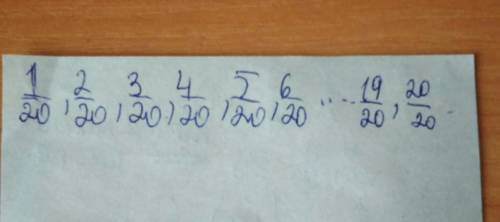 1/20, 2/20, 3/20, 4/20, 5/20, 6/20 ..... 19/20, 20/20.